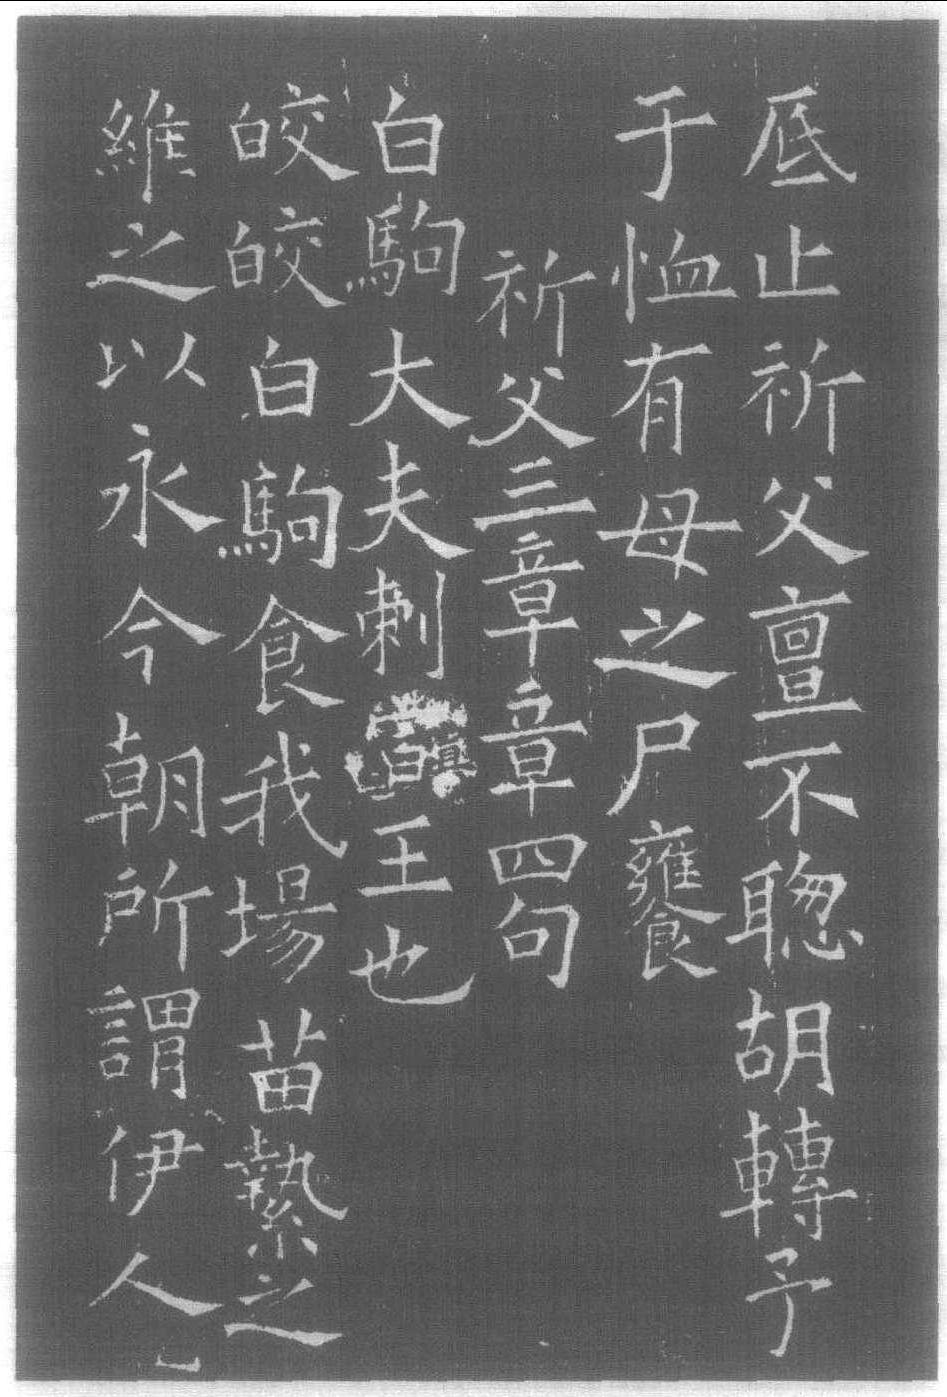 厎止祈父亶不聦胡轉予
于恤有母之尸饔
祈父三章章四句
白駒大夫刺王也
皎皎白駒食我場苗縶之
維之以永今朝所謂伊人